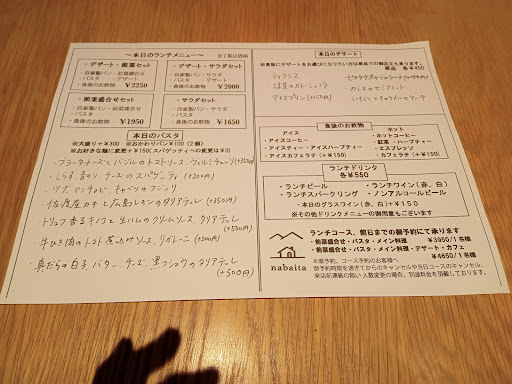 ～本日のランチメニュー～
全て税込価格
・デザート・前菜セット
・自家製パン・前菜盛合せ
・パスタ ・デザート
・食後のお飲物 ¥2250
・デザート・サラダセット
・自家製パン・サラダ
・パスタ ・デザート
・食後のお飲物 ¥2000
前菜盛合せセット
・自家製パン・前菜盛合せ
・パスタ
・食後のお飲物 ¥1950
・サラダセット
・自家製パン・サラダ
・パスタ
・食後のお飲物 ¥1650
本日のパスタ
※大盛り＋¥300 ※おかわりパン¥100（2個）
※お好きな麺に変更＋¥150（スパゲッティへの変更は¥0）
・ブラータチーズとバジルのトマトソース、ヴェルミチェッリ(+350円)
・しらす 青のり チーズのスパゲッティ (+200円)
・ツナ アンチョビ キャベツのフジッリ
・佐渡産カキと広島レモンのタリアテッレ (+350円)
・トリュフ香るキノコと生ハムのクリームソース タリアテッレ (+500円)
・牛ひき肉のトマト煮込みソース、リガトーニ (+200円)
・真だらの白子 バター、チーズ、黒コショウのタリアテッレ (+500円)
本日のデザート
※食後にデザートをお選びになりたい方は単品での御注文も承ります。
単品 各¥450
ティラミス
抹茶のガトーショコラ
アイスプリン(+50円)
カシスのセミフレット
食後のお飲物
アイス
・アイスコーヒー
・アイスティー・アイスハーブティー
・アイスカフェラテ（＋¥150）
ホット
・ホットコーヒー
・紅茶・ハーブティー
・エスプレッソ
・カフェラテ（＋¥150）
ランチドリンク
各¥550
・ランチビール ・ランチワイン（赤、白）
・ランチスパークリング ・ノンアルコールビール
・本日のグラスワイン（赤、白）＋¥150
※その他ドリンクメニューの御用意もございます
nabaita
ランチコース、前日までの御予約にて承ります
・前菜盛合せ・パスタ・メイン料理 ¥3950/1名様
・前菜盛合せ・パスタ・メイン料理・デザート・カフェ
¥4650/1名様
※席予約、コース予約のお客様へ
御予約時間を過ぎてからのキャンセルや当日コースのキャンセル、
来店前連絡の無い人数変更の場合、別途料金を頂戴しております。